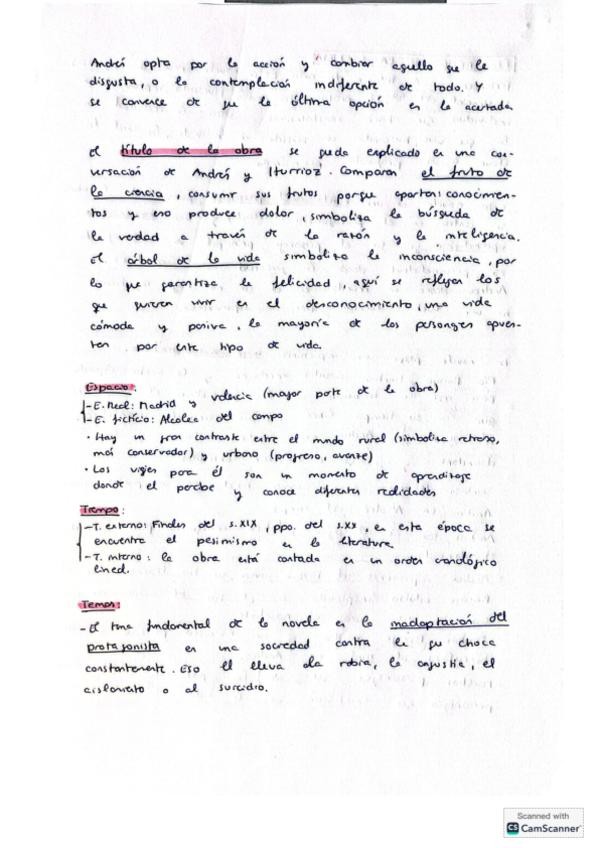 Andrés opta por la acción y cambiar aquello que le
disgusta, o la contemplación indiferente de todo. Y
se convence de que la última opción en la acertada
El título de la obra se puede explicado en una con-
versación de Andrés y Iturrioz. Comparan el fruto de
la ciencia, consumir sus frutos porque aportan conocimien-
tos y eso produce dolor, simboliza la búsqueda de
la verdad a través de la razón y la inteligencia.
El árbol de la vida simboliza la inconsciencia, por
lo que garantiza la felicidad, aquí se reflejan los
que quieren vivir en el desconocimiento, una vida
cómoda y pasiva, la mayoría de los personajes apues-
tan por este tipo de vida.
Espacio:
- E. Real: Madrid y Valencia (mayor parte de la obra)
- E. ficticio: Alcolea del campo
· Hay un gran contraste entre el mundo rural (simboliza retraso,
más conservador) y urbano (progreso, avance)
· Los viajes para él son un momento de aprendizaje
donde él percibe y conoce diferentes realidades
Tiempo:
- T. externo: Finales del s.XIX, ppo. del s.XX, en esta época se
encuentra el pesimismo en la literatura
- T. interno: la obra está contada en un orden cronológico
lineal.
Temas:
- El tema fundamental de la novela es la inadaptación del
protagonista en una sociedad contra la que choca
constantemente. Eso él lleva a la rabia, la angustia, el
aislamiento o al suicidio.
Scanned with
CS CamScanner